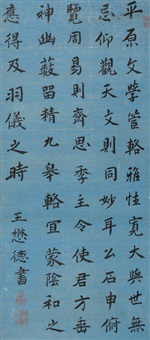 平原文學管輅雅性寬大與世無
忌仰觀天文則同妙甘公石申俯
覽周易則齊思季主今使君方垂
神幽藪留精九皋輅宜蒙陰和之
應得及羽儀之時
王懋德書